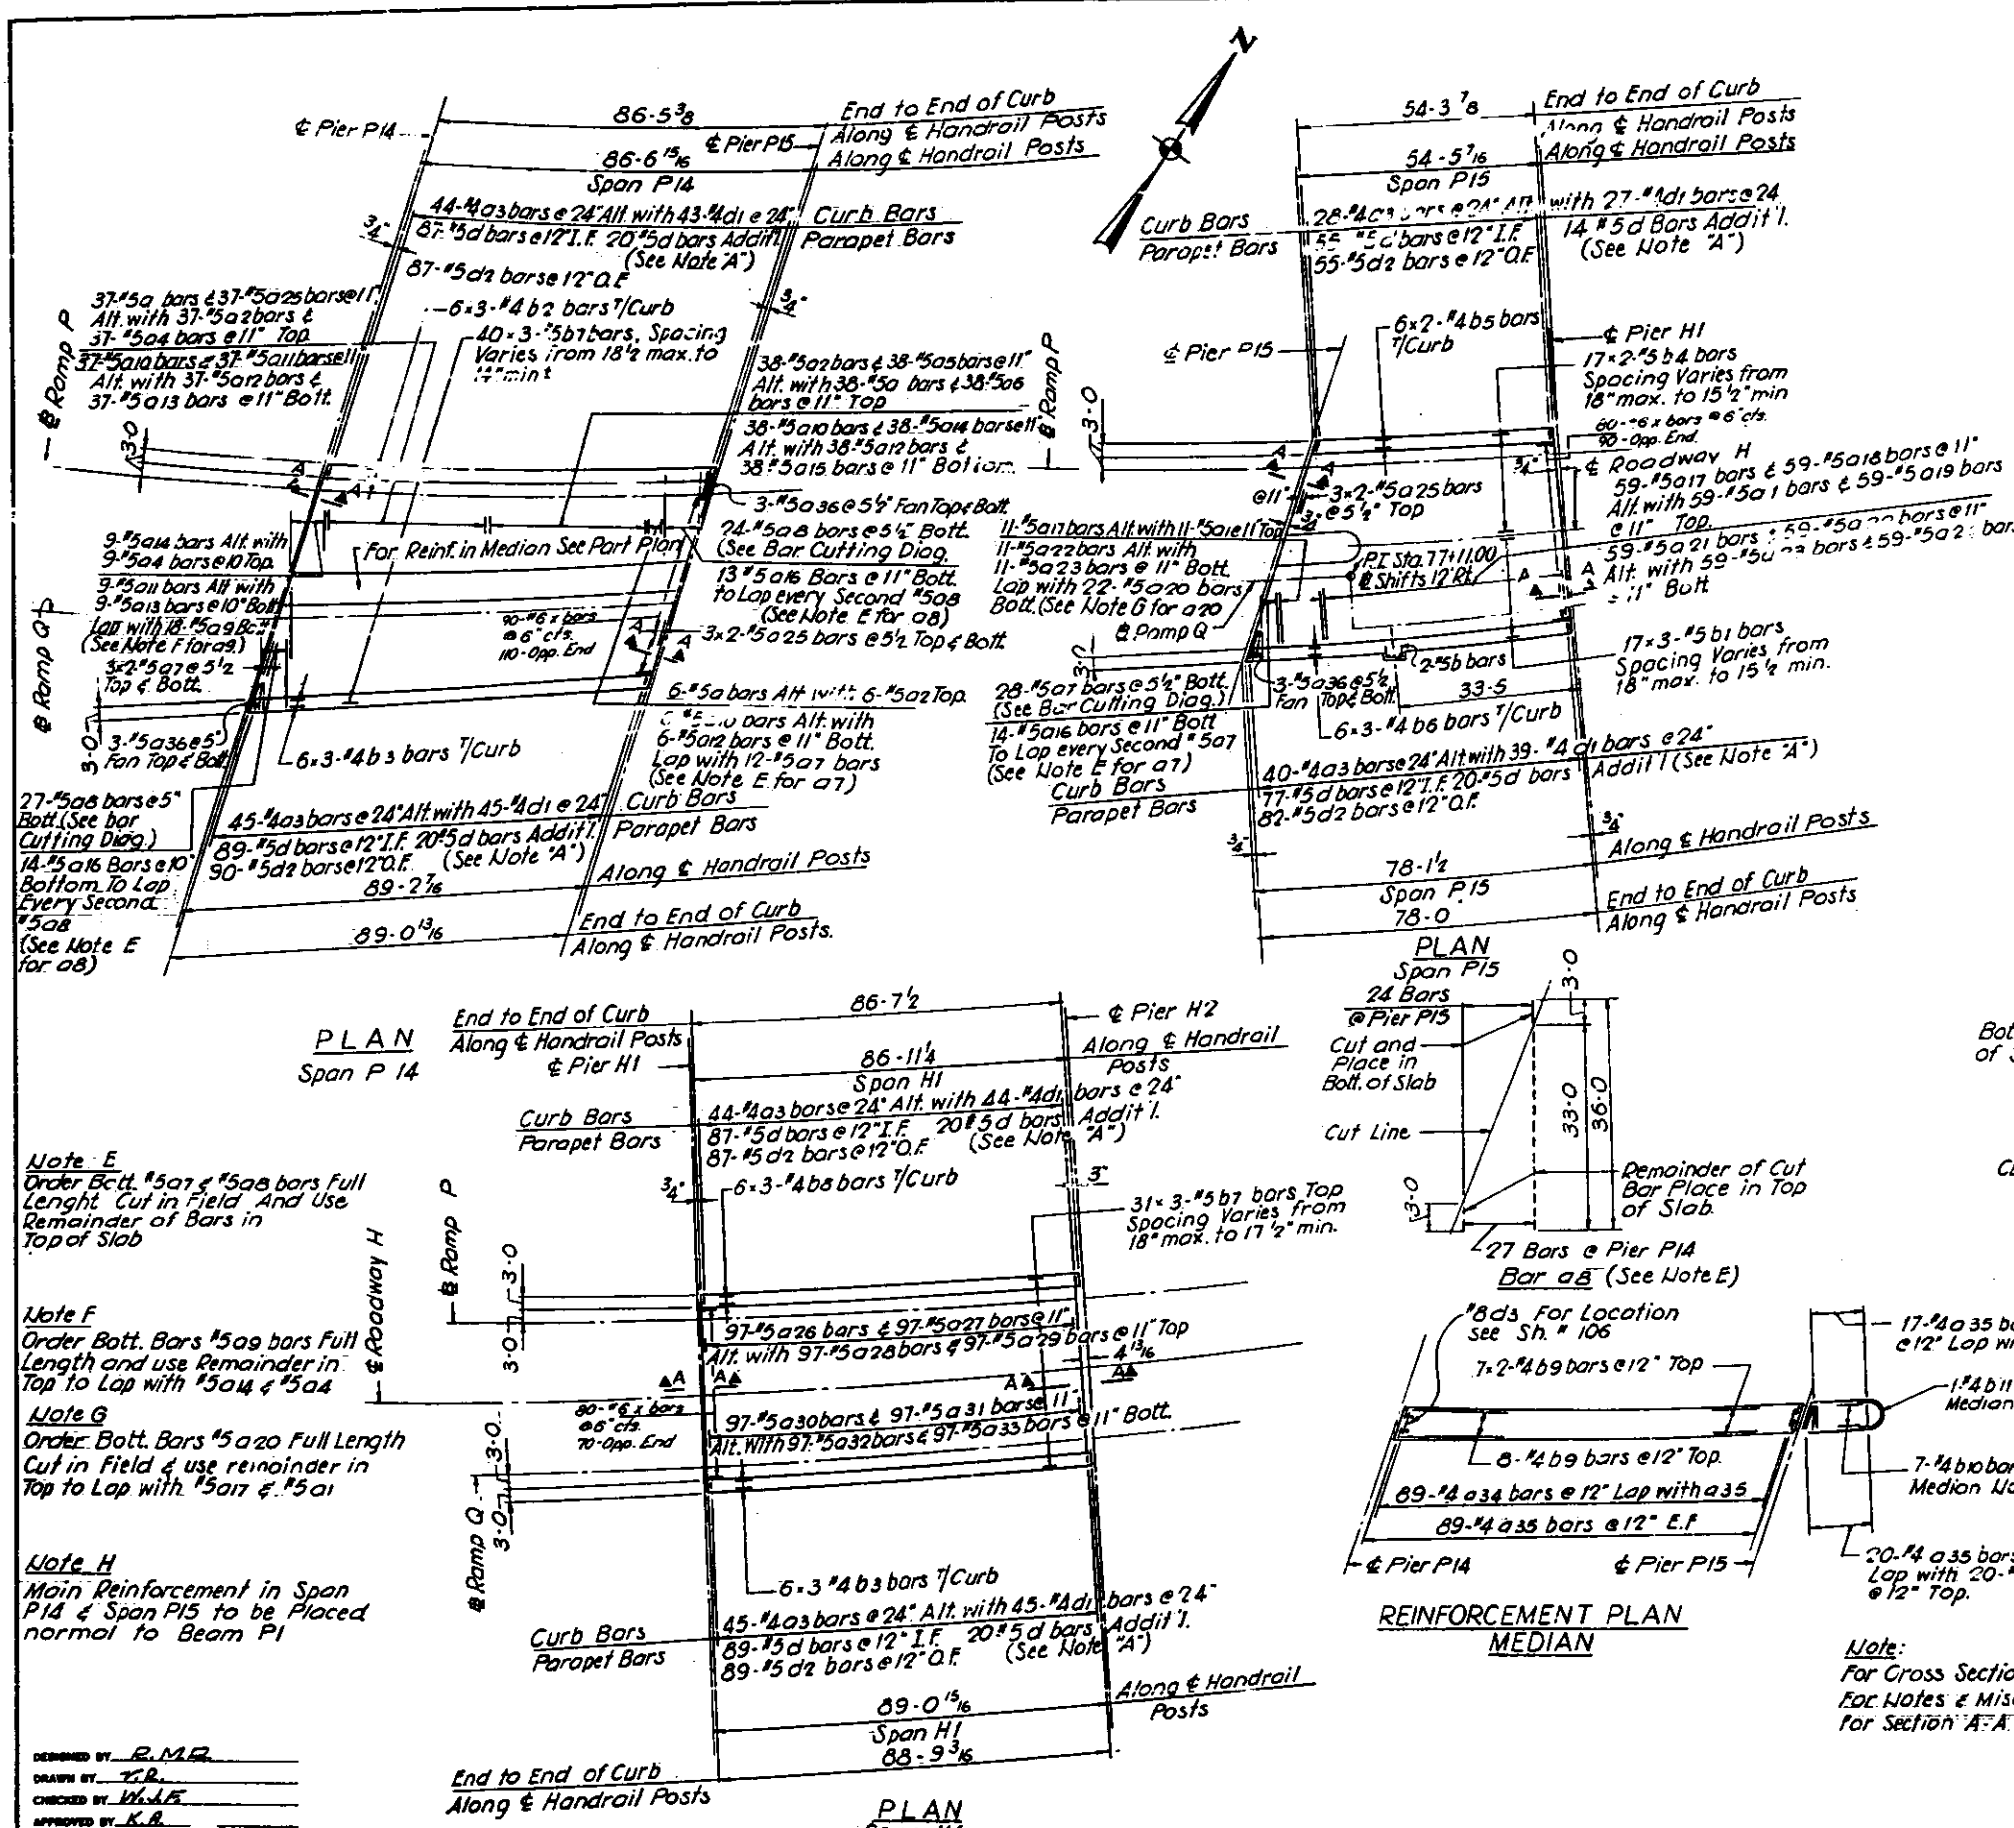 N
86-5 3/8
End to End of Curb
Along ℄ Handrail Posts
℄ Pier P14
℄ Pier P15
86-6 15/16
Along ℄ Handrail Posts
Span P14
44-#4a3 bars @ 24" Alt. with 43-#4d1 @ 24"
Curb Bars
87-#5d bars @ 12" I.F. 20-#5d bars Addit'l.
Parapet Bars
(See Note "A")
3/4"
87-#5d2 bars @ 12" O.F.
37-#5a bars & 37-#5a25 bars @ 11"
Alt. with 37-#5a2 bars &
37-#5a4 bars @ 11" Top
37-#5a10 bars & 37-#5a11 bars @ 11"
Alt. with 37-#5a12 bars &
37-#5a13 bars @ 11" Bott.
6×3-#4b2 bars T/Curb
40×3-#5b7 bars, Spacing
Varies from 18 1/2 max. to
3/4"
38-#5a2 bars & 38-#5a5 bars @ 11"
Alt. with 38-#5a bars & 38-#5a6
bars @ 11" Top
38-#5a10 bars & 38-#5a14 bars @ 11"
Alt. with 38-#5a12 bars &
38-#5a15 bars @ 11" Bottom
℄ Ramp P
3-0
A
A
3-#5a36 @ 5 1/2" Fan Top & Bott.
24-#5a8 bars @ 5 1/2" Bott.
(See Bar Cutting Diag.
13 #5a16 Bars @ 11" Bott.
to Lap every Second #5a8
(See Note E for a8)
3×2-#5a25 bars @ 5 1/2 Top & Bott.
For Reinf. in Median See Part Plan
9-#5a14 bars Alt. with
9-#5a4 bars @ 10 Top.
9-#5a11 bars Alt with
9-#5a13 bars @ 10" Bott
Lap with 18-#5a9 Bott
(See Note F for a9.)
3×2-#5a7 @ 5 1/2
Top & Bott.
℄ Ramp Q
90-#6 x bars
@ 6" cts.
110-Opp. End
A
A
6-#5a bars Alt with 6-#5a2 Top.
bars Alt. with
6-#5a12 bars @ 11" Bott.
Lap with 12-#5a7 bars
(See Note E for a7)
3-0
3-#5a36 @ 5"
Fan Top & Bott.
6×3-#4b3 bars T/Curb
27-#5a8 bars @ 5"
Bott. (See bar
Cutting Diag.)
14-#5a16 Bars @ 10"
Bottom To Lap
Every Second
#5a8
(See Note E
for a8)
45-#4a3 bars @ 24" Alt. with 45-#4d1 @ 24"
Curb Bars
89-#5d bars @ 12" I.F. 20-#5d bars Addit'l.
Parapet Bars
90-#5d2 bars @ 12" O.F. (See Note "A")
89-2 7/16
Along ℄ Handrail Posts
89-0 13/16
End to End of Curb
Along ℄ Handrail Posts.
PLAN
Span P 14
54-3 7/8
End to End of Curb
Along ℄ Handrail Posts
54-5 7/16
Along ℄ Handrail Posts
Span P15
Curb Bars
with 27-#4d1 bars @ 24
Parapet Bars
bars @ 12" I.F.
14 #5d Bars Addit'l.
55-#5d2 bars @ 12" O.F.
(See Note "A")
6×2-#4b5 bars
T/Curb
℄ Pier P15
℄ Pier H1
17×2-#5b4 bars
Spacing Varies from
18" max. to 15 1/2" min
#6 x bars @ 6" cts.
90-Opp. End.
℄ Ramp P
3-0
3/4"
℄ Roadway H
59-#5a17 bars & 59-#5a18 bars @ 11"
Alt. with 59-#5a1 bars & 59-#5a19 bars
@ 11" Top.
Alt. with
11" Bott
A
A
@ 11"
3×2-#5a25 bars
@ 5 1/2" Top
11-#5a17 bars Alt. with 11-#5a1 @ 11 Top
11-#5a22 bars Alt. with
11-#5a23 bars @ 11" Bott.
Lap with 22-#5a20 bars
Bott. (See Note G for a20
℄ Ramp Q
P.I. Sta. 77+11.00
℄ Shifts 12' Rt.
3-0
2-#5b bars
17×3-#5b1 bars
Spacing Varies from
18" max. to 15 1/2 min.
28-#5a7 bars @ 5 1/2" Bott.
(See Bar Cutting Diag.)
14-#5a16 bars @ 11" Bott
To Lap every Second #5a7
(See Note E for a7)
3-#5a36 @ 5 1/2
Fan Top & Bott.
33-5
6×3-#4b6 bars T/Curb
40-#4a3 bars @ 24" Alt with 39-#4d1 bars @ 24"
Curb Bars
77-#5d bars @ 12" I.F. 20-#5d bars Addit'l (See Note "A")
Parapet Bars
82-#5d2 bars @ 12" O.F.
3/4"
3/4"
78-1 1/2
Along ℄ Handrail Posts
Span P15
78-0
End to End of Curb
Along ℄ Handrail Posts
PLAN
Span P15
86-7 1/2
End to End of Curb
Along ℄ Handrail Posts
℄ Pier H1
℄ Pier H2
86-11 1/4
Along ℄ Handrail
Posts
Span H1
44-#4a3 bars @ 24" Alt. with 44-#4d1 bars @ 24"
Curb Bars
87-#5d bars @ 12" I.F. 20 #5d bars Addit'l.
Parapet Bars
87-#5d2 bars @ 12" O.F. (See Note "A")
3/4"
6×3-#4b8 bars T/Curb
31×3-#5b7 bars Top
Spacing Varies from
18" max. to 17 1/2" min.
℄ Roadway H
℄ Ramp P
3-0
3-0
97-#5a26 bars & 97-#5a27 bars @ 11"
Alt. with 97-#5a28 bars & 97-#5a29 bars @ 11" Top
4 13/16
A
A
A
A
#6 x bars
@ 6" cts.
70-Opp. End
97-#5a30 bars & 97-#5a31 bars @ 11"
Alt. With 97-#5a32 bars & 97-#5a33 bars @ 11" Bott.
℄ Ramp Q
3-0
3-0
6×3 #4b3 bars T/Curb
45-#4a3 bars @ 24" Alt. with 45-#4d1 bars @ 24"
Curb Bars
89-#5d bars @ 12" I.F. 20 #5d bars Addit'l.
Parapet Bars
89-#5d2 bars @ 12" O.F. (See Note "A")
89-0 15/16
Along ℄ Handrail
Posts
Span H1
88-9 3/16
End to End of Curb
Along ℄ Handrail Posts
PLAN
Note E
Order Bott. #5a7 & #5a8 bars Full
Lenght Cut in Field And Use
Remainder of Bars in
Top of Slab
Note F
Order Bott. Bars #5a9 bars Full
Length and use Remainder in
Top to Lap with #5a14 & #5a4
Note G
Order Bott. Bars #5a20 Full Length
Cut in Field & use remainder in
Top to Lap with #5a17 & #5a1
Note H
Main Reinforcement in Span
P14 & Span P15 to be Placed
normal to Beam P1
24 Bars
@ Pier P15
Cut and
Place in
Bott. of Slab
Cut Line
3-0
33-0
36-0
3-0
Remainder of Cut
Bar Place in Top
of Slab.
27 Bars @ Pier P14
Bar a8 (See Note E)
#8d3 For Location
see Sh. # 106
7×2-#4b9 bars @ 12" Top
8-#4b9 bars @ 12" Top.
89-#4a34 bars @ 12" Lap with a35
89-#4a35 bars @ 12" E.F
℄ Pier P14
℄ Pier P15
17-#4a35
@ 12" Lap
1-#4b11
Median
7-#4b10
Median
20-#4a35 bars
Lap with 20-
@ 12" Top.
REINFORCEMENT PLAN
MEDIAN
Note:
For Cross
For Notes &
For Section A-A
DESIGNED BY R.M.
DRAWN BY
CHECKED BY W.J.F.
APPROVED BY K.A.